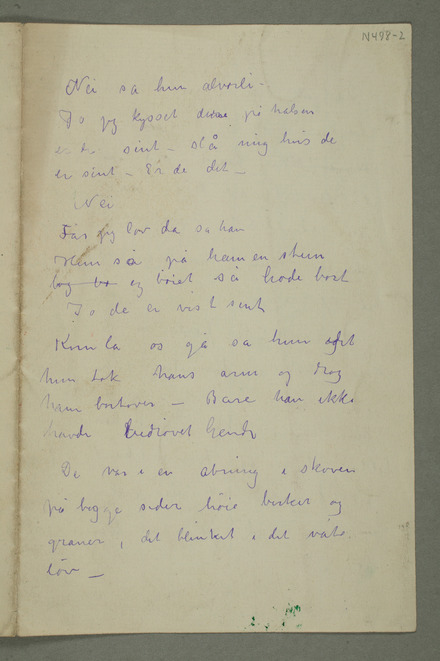 N498-2
Nei sa hun alvorli –
Jo jeg kysset dem på halsen
er de sint – slå mig hvis de
er sint – Er de det –
Nei
Får jeg lov da sa han
Hun så på ham en stun
bøg bø og bøiet så hode bort
Jo de er vist sint
Kom la os gå sa hun
hun tok hans arm og drog
ham bortover – Bare han ikke
havde bedrøvet hende
De var i en åbning i skoven
på begge sider høie birker og
graner, det blinket i det våte
løv –